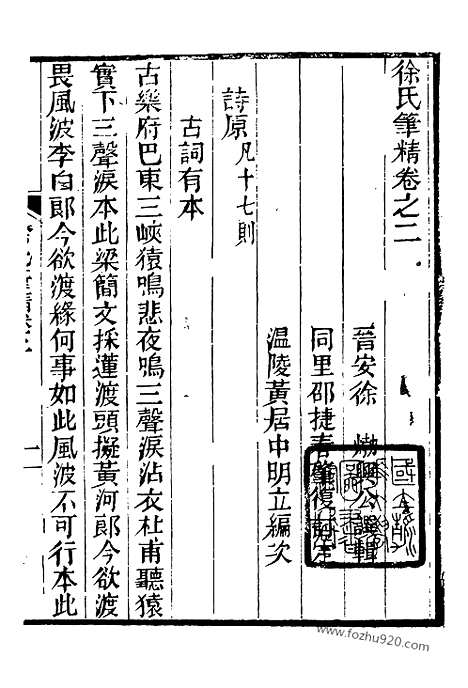 徐氏筆精卷之二
晉安徐𤊹興公譔輯
同里邵捷春肇復
温陵黃居中明立編次
詩原凡十七則
古詞有本
古樂府巴東三峽猿鳴悲夜鳴三聲淚沾衣杜甫聽猿
實下三聲淚本此梁簡文採蓮渡頭擬黃河郎今欲渡
畏風波李白郎今欲渡緣何事如此風波不可行本此
www.fozhu920.com